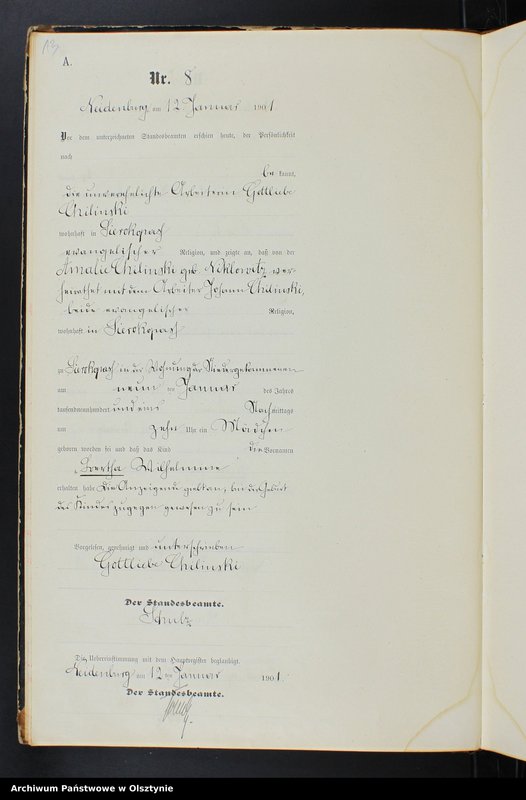 13
A.
Nr. 8
Neidenburg, am 12 Januar 1901
Vor dem unterzeichneten Standesbeamten erschien heute, der Persönlichkeit
nach
be kannt,
die unverehelichte Arbeiterin Gottliebe
Chilinski
wohnhaft in Sierokopaß
evangelischer Religion, und zeigte an, daß von der
Amalie Chilinski geb. ver-
heirathet mit dem Arbeiter Johann Chilinski,
beide evangelischer Religion,
wohnhaft in Sierokopaß
zu Sierokopaß in der Wohnung der Niedergekommenen
am neun ten Januar des Jahres
tausendneunhundert und eins Nachmittags
um zehn Uhr ein Mädchen
geboren worden sei und daß das Kind die Vornamen
Bertha Wilhelmine
erhalten habe. Die Anzeigende bei der Geburt
des Kindes zugegen gewesen zu sein
Vorgelesen, genehmigt und unterschrieben
Gottliebe Chilinski
Der Standesbeamte.
Schulz
Die Uebereinstimmung mit dem Hauptregister beglaubigt.
Neidenburg am 12 ten Januar 1901.
Der Standesbeamte.
Schulz
Archiwum Państwowe w Olsztynie